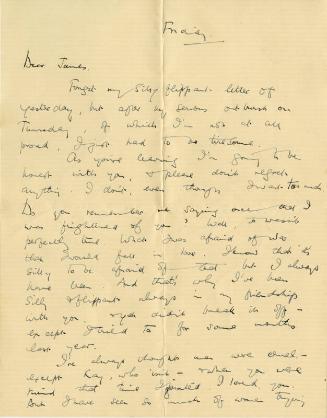 Friday.
Dear James.
Forget my silly flippant letter of
yesterday, but after my serious outburst on
Thursday, of which I'm not at all
proud, I just had to be tiresome.
As you're leaving I'm going to be
honest with you, & please don't regret
anything. I don't, even though I want too much.
Do you remember me saying once that I
was frightened of you? Well, it wasn't
perfectly true. What I was afraid of was
that I would fall in love. I know that it's
silly to be afraid of that but I always
have been. And that's why I've been
silly & flippant always in my friendship
with you & yet didn't break it off -
except I tried to for some months
last year.
I've always thought men were cruel -
except Kay, who isn't - & when you were
that time I I loved you.
But I have seen so much of women trying